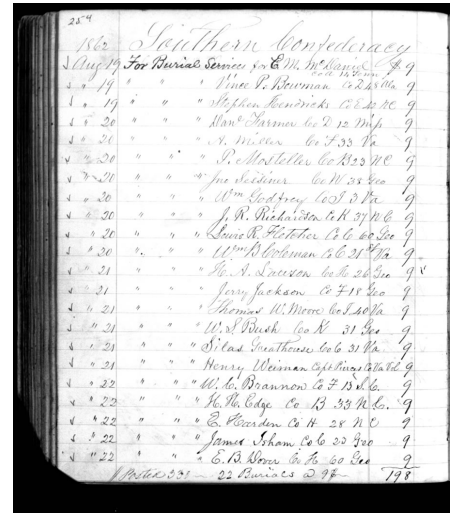 254
1862 Southern Confederacy
Aug 19 For Burial Services for E. M. McDaniel $ 9
Co A 14 Tenn
" 19 " " " Vince P. Bowman Co D 48 Va 9
" 19 " " " Stephen Hendricks Co E 42 NC 9
" 20 " " " Danl Farmer Co D 12 Miss 9
" 20 " " " A. Miller Co F 33 Va 9
" 20 " " " P. Mosteller Co B 23 N C 9
" 20 " " " Jno Co K 38 Geo 9
" 20 " " " Wm Godfrey Co I 3 Va 9
" 20 " " " J. R. Richardson Co K 37 N C 9
" 20 " " " Lewis R. Fletcher Co C 60 Geo 9
" 20 " " " Wm B Coleman Co C 21st Va 9
" 21 " " " H. A. Co H 26 Geo 9
" 21 " " " Jerry Jackson Co F 18 Geo 9
" 21 " " " Thomas W. Moore Co I 40 Va 9
" 21 " " " W. S Bush Co K 31 Geo 9
" 21 " " " Silas Greathouse Co C 31 Va 9
" 21 " " " Henry Weiman Capt Co Va Vol 9
" 22 " " " W. C. Brannon Co F 13 S. C. 9
" 22 " " " H. H. Edge Co B 33 N. C. 9
" 22 " " " E. Harden Co H 28 N C 9
" 22 " " " James Isham Co C 23 Geo 9
" 22 " " " E. B. Dover Co H 60 Geo 9
Posted 331 22 Burials @ 9$ 198